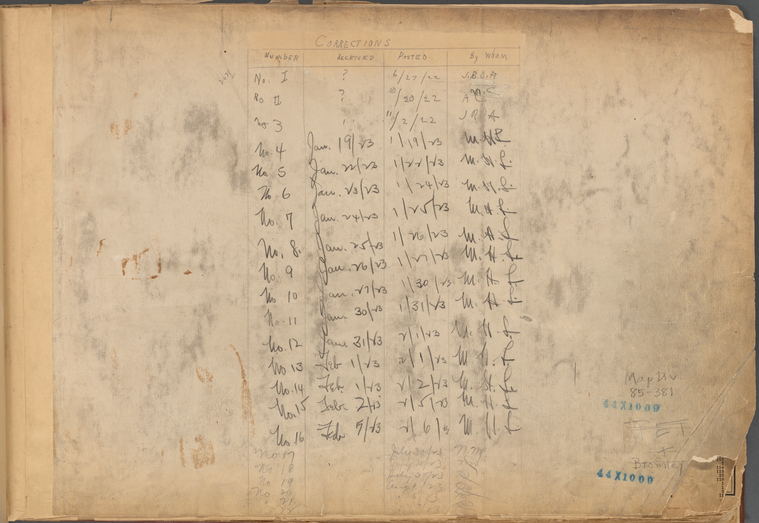 CORRECTIONS
NUMBER RECEIVED POSTED By WHOM
No. I ? 6/27/22 J.B.O.A
No II ? 10/20/22 A
No 3 11/2/22 J R A
No. 4 Jan. 19/23 1/19/23 M.H.L.
No. 5 Jan. 22/23 1/22/23 M.H.L.
No. 6 Jan. 23/23 1/24/23 M.H.L.
No. 7 Jan. 24/23 1/25/23 M.H.L.
No. 8. Jan. 25/23 1/26/23 M.H.L.
No. 9 Jan. 26/23 1/27/23 M.H.L.
No. 10 Jan. 27/23 1/30/23 M.H.L.
No. 11 Jan. 30/23 1/31/23 M.H.L.
No. 12 Jan. 31/23 2/1/23 M.H.L.
No. 13 Feb 1/23 2/1/23 M.H.L.
No. 14 Feb. 1/23 2/2/23 M.H.L.
No. 15 Feb. 2/23 2/5/23 M.H.L.
No. 16 Feb 5/23 2/6/23 M.H.L.
No 17
No 18
No 19
No 20
21
Map Div
85-381
44X1000
Bromley
44X1000